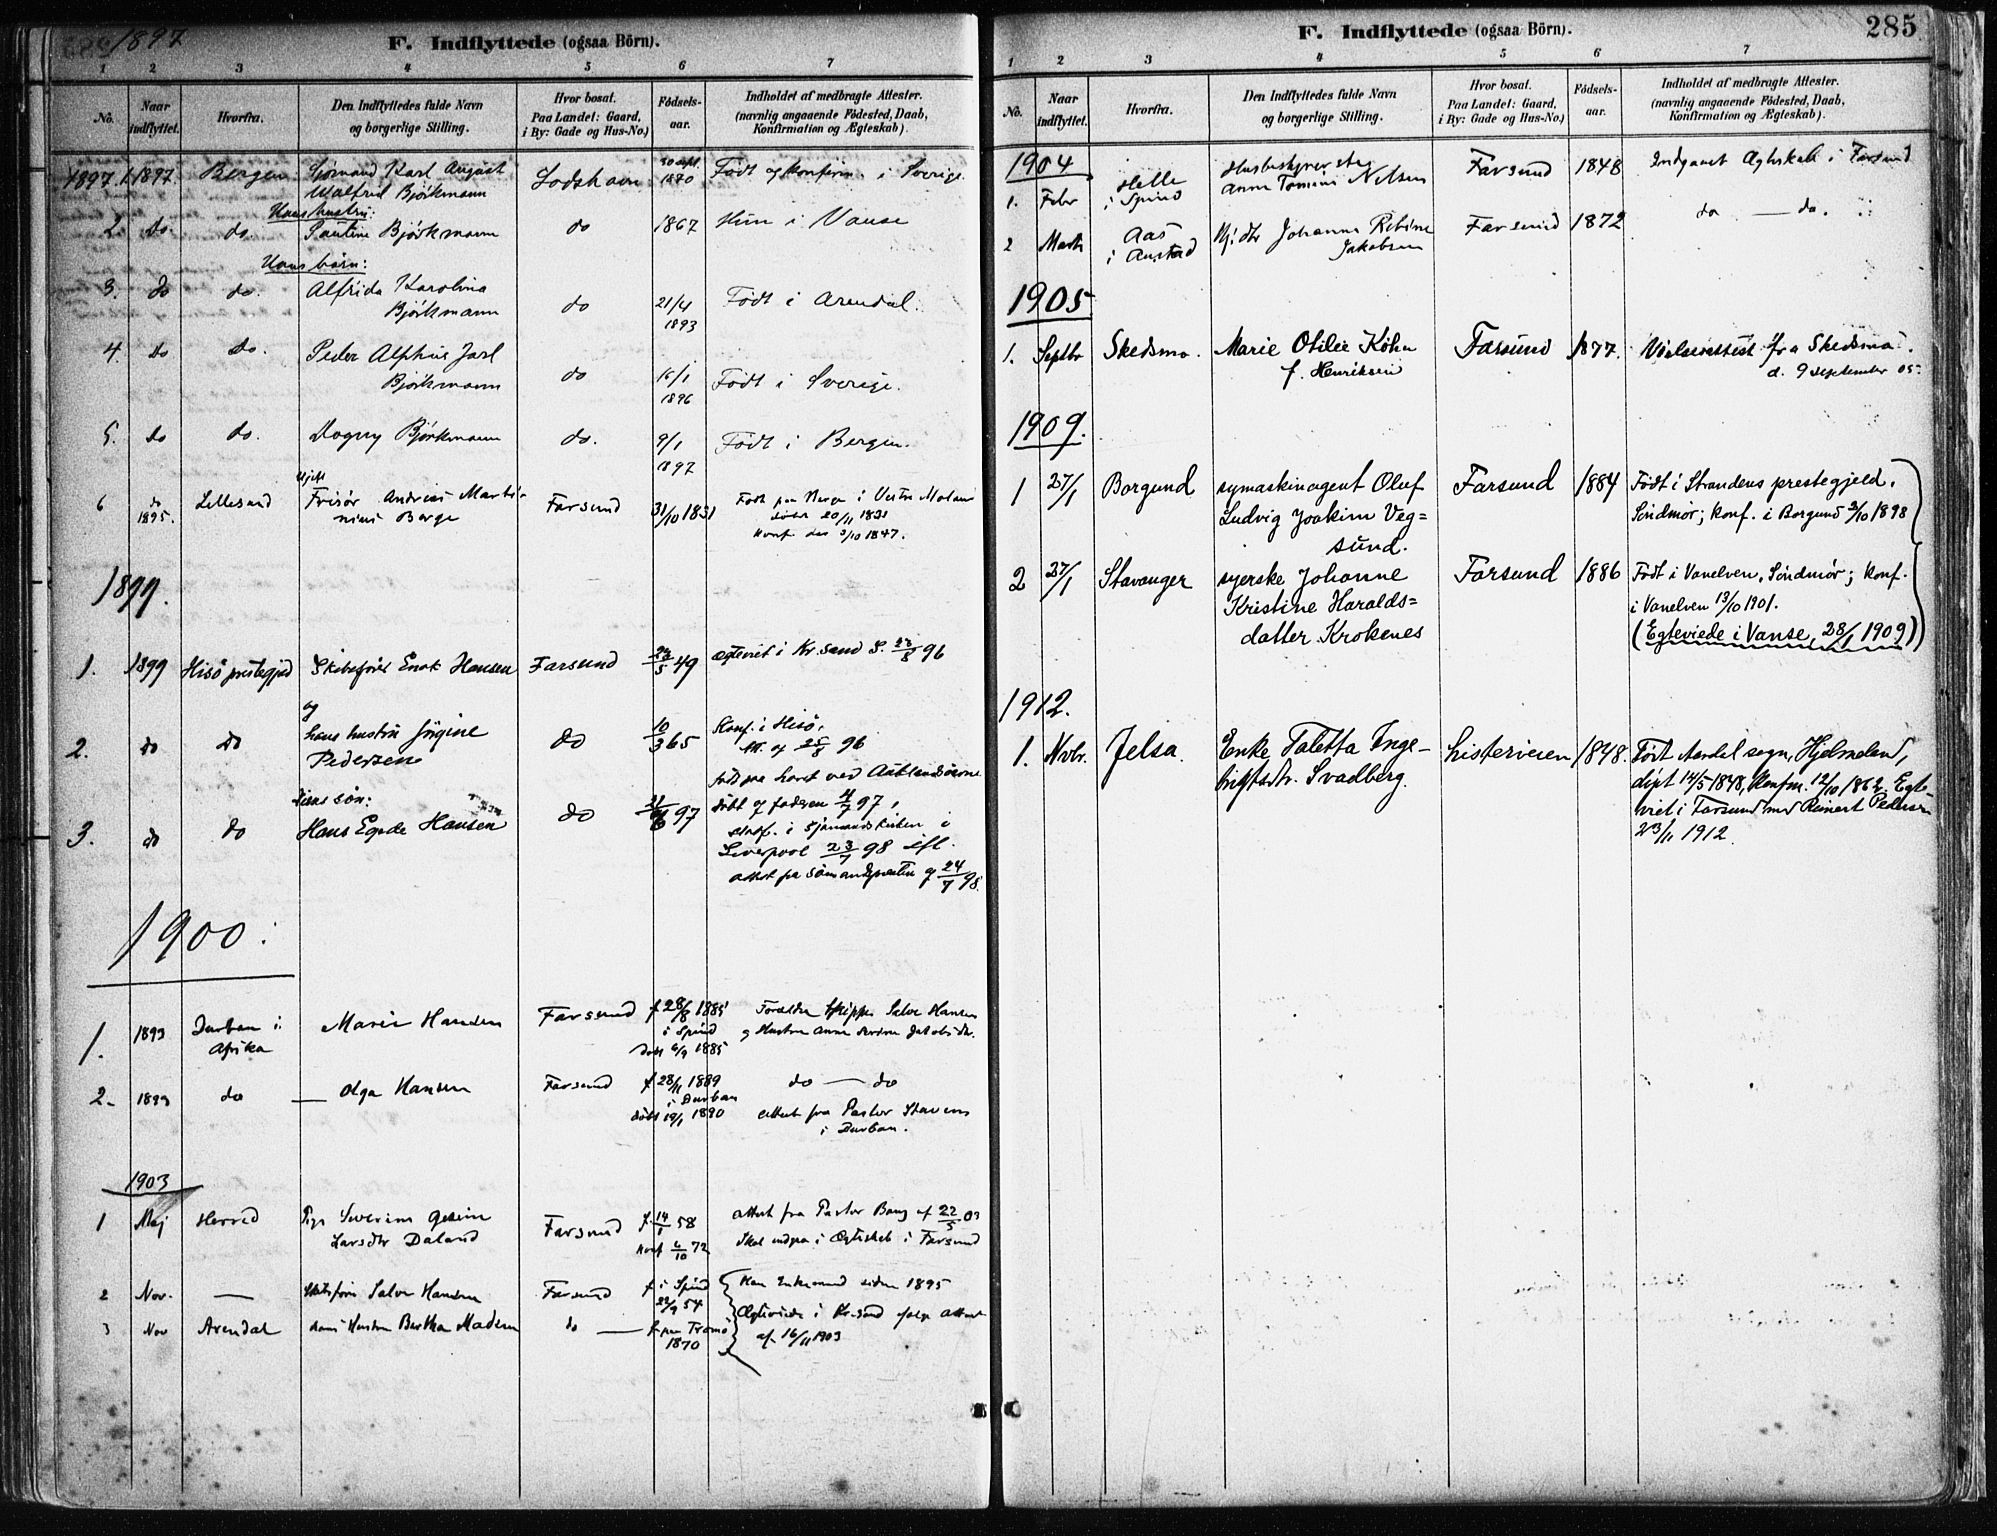 1897
F. Indflyttede (ogsaa Börn).
1 2 3 4 5 6 7
No. Naar indflyttet. Hvorfra. Den Indflyttedes fulde Navn og borgerlige Stilling. Hvor bosat. Paa Landet: Gaard, i By: Gade og Hus-No.) Födsels-aar. Indholdet af medbragte Attester. (navnlig angaaende Födested, Daab, Konfirmation og Ægteskab).
1897 1. 1897 Bergen Sjømand Karl August Lodshavn 1870 Født og konfirm. i Sverige
Walfrid Bjørkmann
Hans hustru:
2. do. do. Bjørkmann do 1867 Hun i Vanse
Hans børn:
3. do do. Alfrida Karolina
Bjørkmann do 21/4 1893 Født i Arendal.
4. do do. Peder Alphus Jarl
Bjørkmann do 16/1 1896 Født i Sverige.
5. do do. Dagny Bjørkmann do. 9/1 1897 Født i Bergen.
6 do 1895. Lillesand Frisør Andreas Marti-
nius Berge Farsund 31/10 1831 Født paa Berge i Vestre Moland
døbt 20/11 1831
Konf. den 3/10 1847.
1899.
1. 1899 Hisö prestegjeld Skibsfører Enok Hansen Farsund 49 ægteviet i Kr.sand S. 23/8 96
og
2. do do hans hustru Jörgine
Pedersen do 10/3 65 Konf. i Hisö,
Att. af 25/8 96
deres søn:
3. do do Hans Egede Hansen do 97 født paa havet ved
döbt af faderen 4/7 97,
i Sjømandskirken i
Liverpool 23/7 98 ifl.
attest fra Sömandspresten af 24/7 98.
1900:
1. 1893 Durban i
Afrika Marie Hansen Farsund f 28/8 1885
i Spind
døbt 6/9 1885 Forældre Skipper Salve Hansen
og Hustru Anne Jakobsdtr.
2. 1893 do — Olga Hansen Farsund f 28/11 1889
i Durban
døbt 19/1 1890 do — do
attest fra Pastor
i Durban.
1903
1 Maj Herred Pige Severine Gesine
Larsdtr Daland Farsund f 14/1 58
Konf 6/10 72 attest fra Pastor Bang af 22/5 03
Skal indgaa i Ægteskab i Farsund
2 Nov. — Skibsfører Salve Hansen Farsund f i Spind
22/9 54 Han Enkemand siden 1895
3 Nov Arendal Hans Hustru Bertha Madsen do — f. paa Tromø
1870 Ægteviede i Kr.sand ifølge attest
af 16/11 1903
285
F. Indflyttede (ogsaa Börn).
1 2 3 4 5 6 7
No. Naar indflyttet. Hvorfra. Den Indflyttedes fulde Navn og borgerlige Stilling. Hvor bosat. Paa Landet: Gaard, i By: Gade og Hus-No.) Födsels-aar. Indholdet af medbragte Attester. (navnlig angaaende Födested, Daab, Konfirmation og Ægteskab).
1904
1. Febr Helle
i Spind Husbestyrerske
Anne Tomine Nilsen Farsund 1848 Indgaaet Ægteskab i Farsund
2 Marts Aas
i Austad Johanne
Jakobsen Farsund 1872 do — do.
1905
1. Septbr Skedsmo. Marie Otilie Köhn
f. Henriksen Farsund 1877. Vielsesattest fra Skedsmo.
d. 9 september 05.
1909.
1 27/1 Borgund symaskinagent Oluf
Ludvig Joakim Veg=
sund. Farsund 1884 Födt i Strandens prestegjeld,
Söndmör; konf. i Borgund 2/10 1898
2 27/1 Stavanger syerske Johanne
Kristine Haralds=
datter Krokenes Farsund 1886 Födt i Vanelven, Söndmör; konf.
i Vanelven 13/10 1901.
(Egteviede i Vanse, 28/1 1909)
1912.
1. Novbr. Jelsa. Enke Taletta Inge-
brigtsdtr. Svadberg. Listerveien 1848. Født Aardal sogn, Hjelmeland,
døpt 14/5 1848, Konfm. 12/10 1862. Egte-
viet i Farsund med Reinert Pedersen
23/11 1912